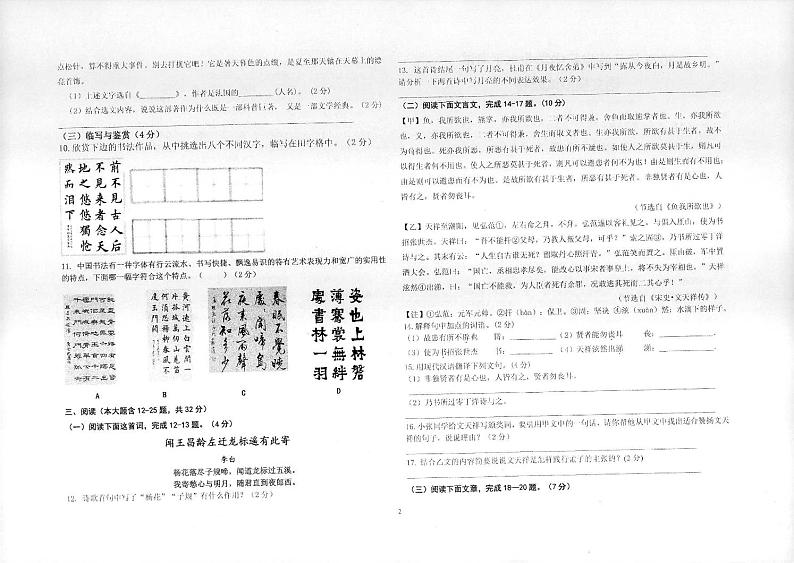 点松针，算不得重大事件。别去打扰它吧！它是暑天暮色的点缀，是夏至那天镶在天幕上的漂
亮首饰。
（1）上述文字选自《________》，作者是法国的________（人名）。（2分）
（2）结合选文内容，说说这部著作为什么既是一部科普巨著，又是一部文学经典。（2分）
（三）临写与鉴赏（4分）
10. 欣赏下边的书法作品，从中挑选出八个不同汉字，临写在田字格中。（2分）
前不见古人后
不见来者念天
地之悠悠独怆
然而泪下
11. 中国书法有一种字体有行云流水、书写快捷、飘逸易识的特有艺术表现力和宽广的实用性
的特点，下面哪一幅字符合这个特点。（　　）（2分）
黄河远上白云间一
片孤城万仞山羌笛
何须怨杨柳春风不
度玉门关
春眠不觉晓
處處聞啼鳥
夜来風雨聲
花落知多少
姿也上林磐
薄騫裳無絆
處書林一羽
A B C D
三、阅读（本大题含12-25题，共32分）
（一）阅读下面这首词，完成12-13题。（4分）
闻王昌龄左迁龙标遥有此寄
李白
杨花落尽子规啼，闻道龙标过五溪。
我寄愁心与明月，随君直到夜郎西。
12. 诗歌首句中写了“杨花”“子规”有什么作用？（2分）
13. 这首诗结尾一句写了月亮，杜甫在《月夜忆舍弟》中写到“露从今夜白，月是故乡明。”
请分析一下两首诗中写月亮的不同表达效果。（2分）
（二）阅读下面文言文，完成14-17题。(10分)
【甲】鱼，我所欲也，熊掌，亦我所欲也，二者不可得兼，舍鱼而取熊掌者也。生，亦我所欲
也，义，亦我所欲也，二者不可得兼，舍生而取义者也。生亦我所欲，所欲有甚于生者，故不
为苟得也。死亦我所恶，所恶有甚于死者，故患有所不辟也。如使人之所欲莫甚于生，则凡可
以得生者何不用也。使人之所恶莫甚于死者，则凡可以避患者何不为也！由是则生而有不用也，
由是则可以避患而有不为也。是故所欲有甚于生者，所恶有甚于死者。非独贤者有是心也，人
皆有之，贤者勿丧耳。
（节选自《鱼我所欲也》）
【乙】天祥至潮阳，见弘范①，左右命之拜，不拜。弘范遂以客礼见之，与俱入厓山，使为书
招张世杰。天祥曰：“吾不能扞②父母，乃教人叛父母，可乎？”索之固③，乃书所过零丁洋
诗与之。其末有云：“人生自古谁无死？留取丹心照汗青。”弘范笑而置之。厓山破，军中置
酒大会，弘范曰：“国亡，丞相忠孝尽矣，能改心以事宋者事皇上，将不失为宰相也。”天祥
泫然出涕④，曰：“国亡不能救，为人臣者死有余罪，况敢逃其死而二其心乎！”
（节选自《宋史·文天祥传》）
【注】①弘范：元军元帅。②扞（hàn）：保卫。③固：坚决 ④泫（xuàn）然：水滴下的样子。
14. 解释句中加点的词语。（2分）
（1）故患有所不辟也　患：________　（2）贤者能勿丧耳　丧：________。
（3）使为书招张世杰　书：________　（4）天祥泫然出涕　涕：________。
15. 用现代汉语翻译下列文句。（4分）
（1）非独贤者有是心也，人皆有之，贤者勿丧耳。
（2）乃书所过零丁洋诗与之。
16. 小张同学给文天祥写颁奖词，要引用甲文中的一句话，请你帮他从甲文中找出适合褒扬文天
祥的句子，说说理由？（2分）
17. 结合乙文的内容简要说说文天祥是怎样践行孟子的主张的？(2分)
（三）阅读下面文章，完成18—20题。（7分）
2